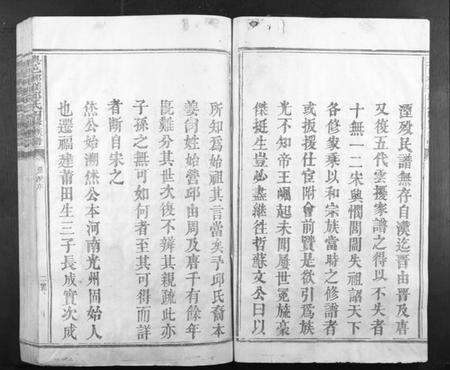 湮歿民譜無存自漢迄晉由晉及唐
又後五代雲擾家譜之得以不失者
十無一二宋興閭閻失祖詔天下
各修家乘以和宗族當時之修譜者
或扳援仕宦附會前賢是欲引爲族
光不知帝王崛起未聞屡世冠旒豪
傑挺生豈必盡繼徃哲蘇文公曰以
所知爲始祖其言當矣予邱氏裔本
姜尙姓始營邱由周及唐千有餘年
旣難分其世次後不辨其親疏此亦
子孫之無可如何者至其可得而詳
者斷自宋之
烋公始溯烋公本河南光州固始人
也遷福建莆田生三子長成實次成